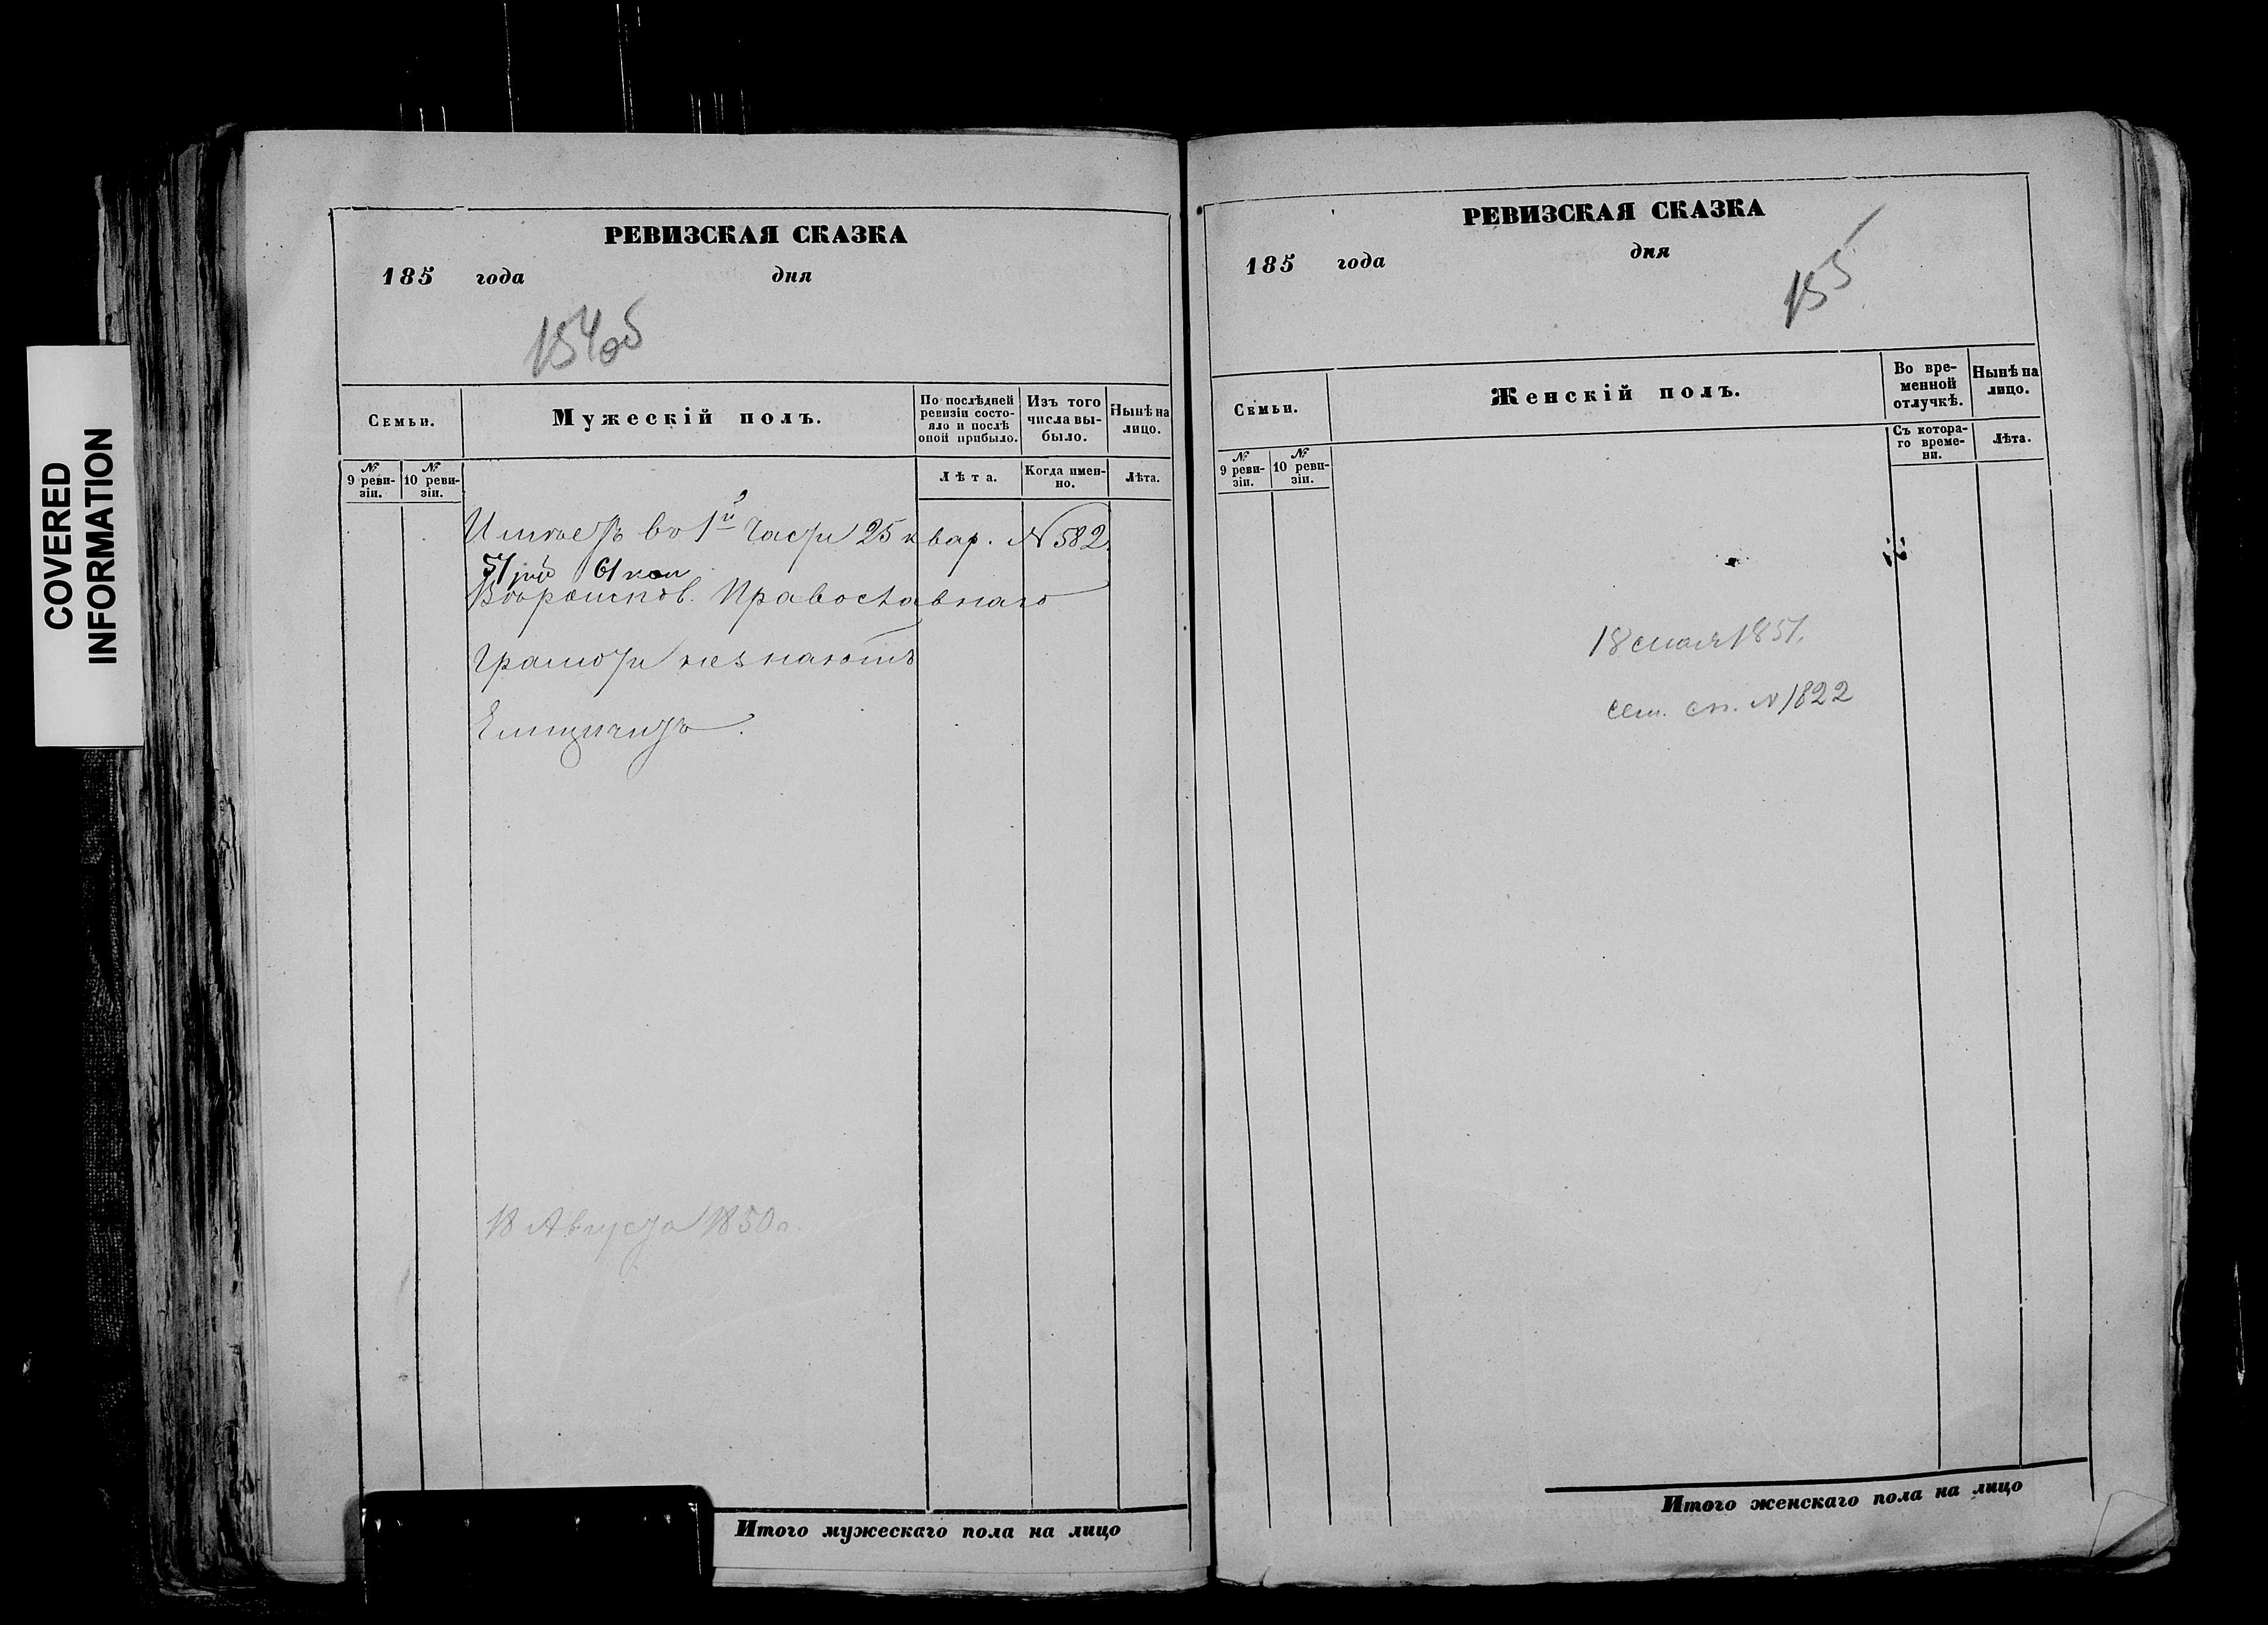 COVERED
INFORMATION
РЕВИЗСКАЯ СКАЗКА
185 года дня
154об
Семьи.
Мужескій полъ.
По послѣдней ревизіи состояло и послѣ оной прибыло.
Изъ того числа выбыло.
Нынѣ на лицо.
№ 9 ревизіи.
№ 10 ревизіи.
Лѣта.
Когда именно.
Лѣта.
Имѣетъ во 1й части 25 квар. № 582
57 руб 61 коп
Вѣроисков. Православнаго
Грамоти незнаютъ
18 Августа 1850 г.
Итого мужескаго пола на лицо
РЕВИЗСКАЯ СКАЗКА
185 года дня
155
Семьи.
Женскій полъ.
Во временной отлучкѣ.
Нынѣ на лицо.
№ 9 ревизіи.
№ 10 ревизіи.
Съ котораго времени.
Лѣта.
18 мая 1851.
сем. сп. № 1822
Итого женскаго пола на лицо